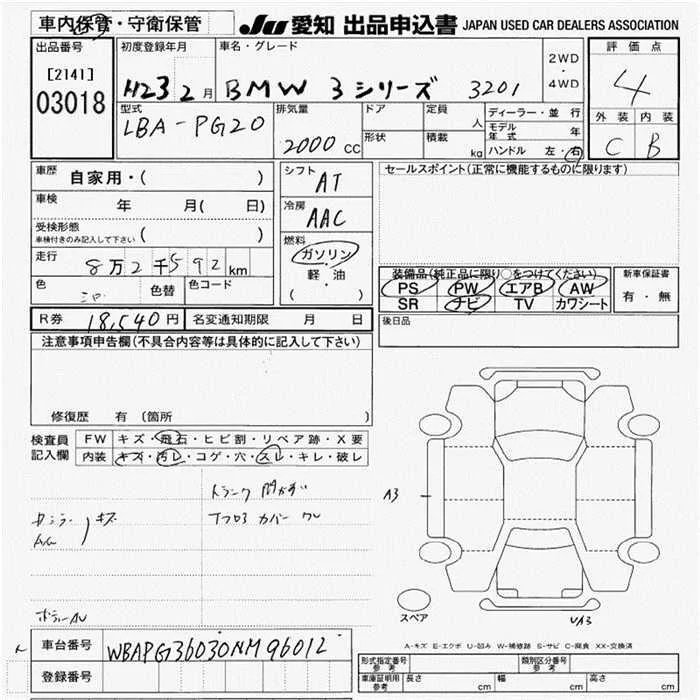 車内保管・守衛保管
JU 愛知 出品申込書 JAPAN USED CAR DEALERS ASSOCIATION
出品番号
[2141]
03018
初度登録年月
H23 2月
車名・グレード
BMW 3シリーズ 320i
2WD
・
4WD
評価点
4
外装 内装
C B
型式
LBA-PG20
排気量
2000 cc
ドア
形状
定員 人
積載 kg
ディーラー・並行
モデル年式 年
ハンドル 左・右
車歴 自家用・( )
車検 年 月( 日)
受検形態
車検付きのみ記入して下さい ( )
走行 8万2千592km
色 色替 色コード
シフト AT
冷房 AAC
燃料
ガソリン
軽・油
( )
セールスポイント(正常に機能するものに限ります)
装備品(純正品に限り○をつけてください)
PS PW エアB AW
SR ナビ TV カワシート
新車保証書
有・無
R券 18,540円 名変通知期限 月 日
後日品
注意事項申告欄(不具合内容等は具体的に記入して下さい)
修復歴 有 〔箇所 〕
検査員
記入欄
FW キズ・飛石・ヒビ割・リペア跡・X要
内装 キズ・汚レ・コゲ・穴・スレ・キレ・破レ
トランク 開かず
キズ
カバー
A3
スペア
UA3
A-キズ E-エクボ U-凹み W-補修跡 S-サビ C-腐食 XX-交換済
車台番号 WBAPG36030NM96012
登録番号
形式指定番号
参考
類別区分番号
参考
車庫証明用
参考
長さ cm 幅 cm 高さ cm